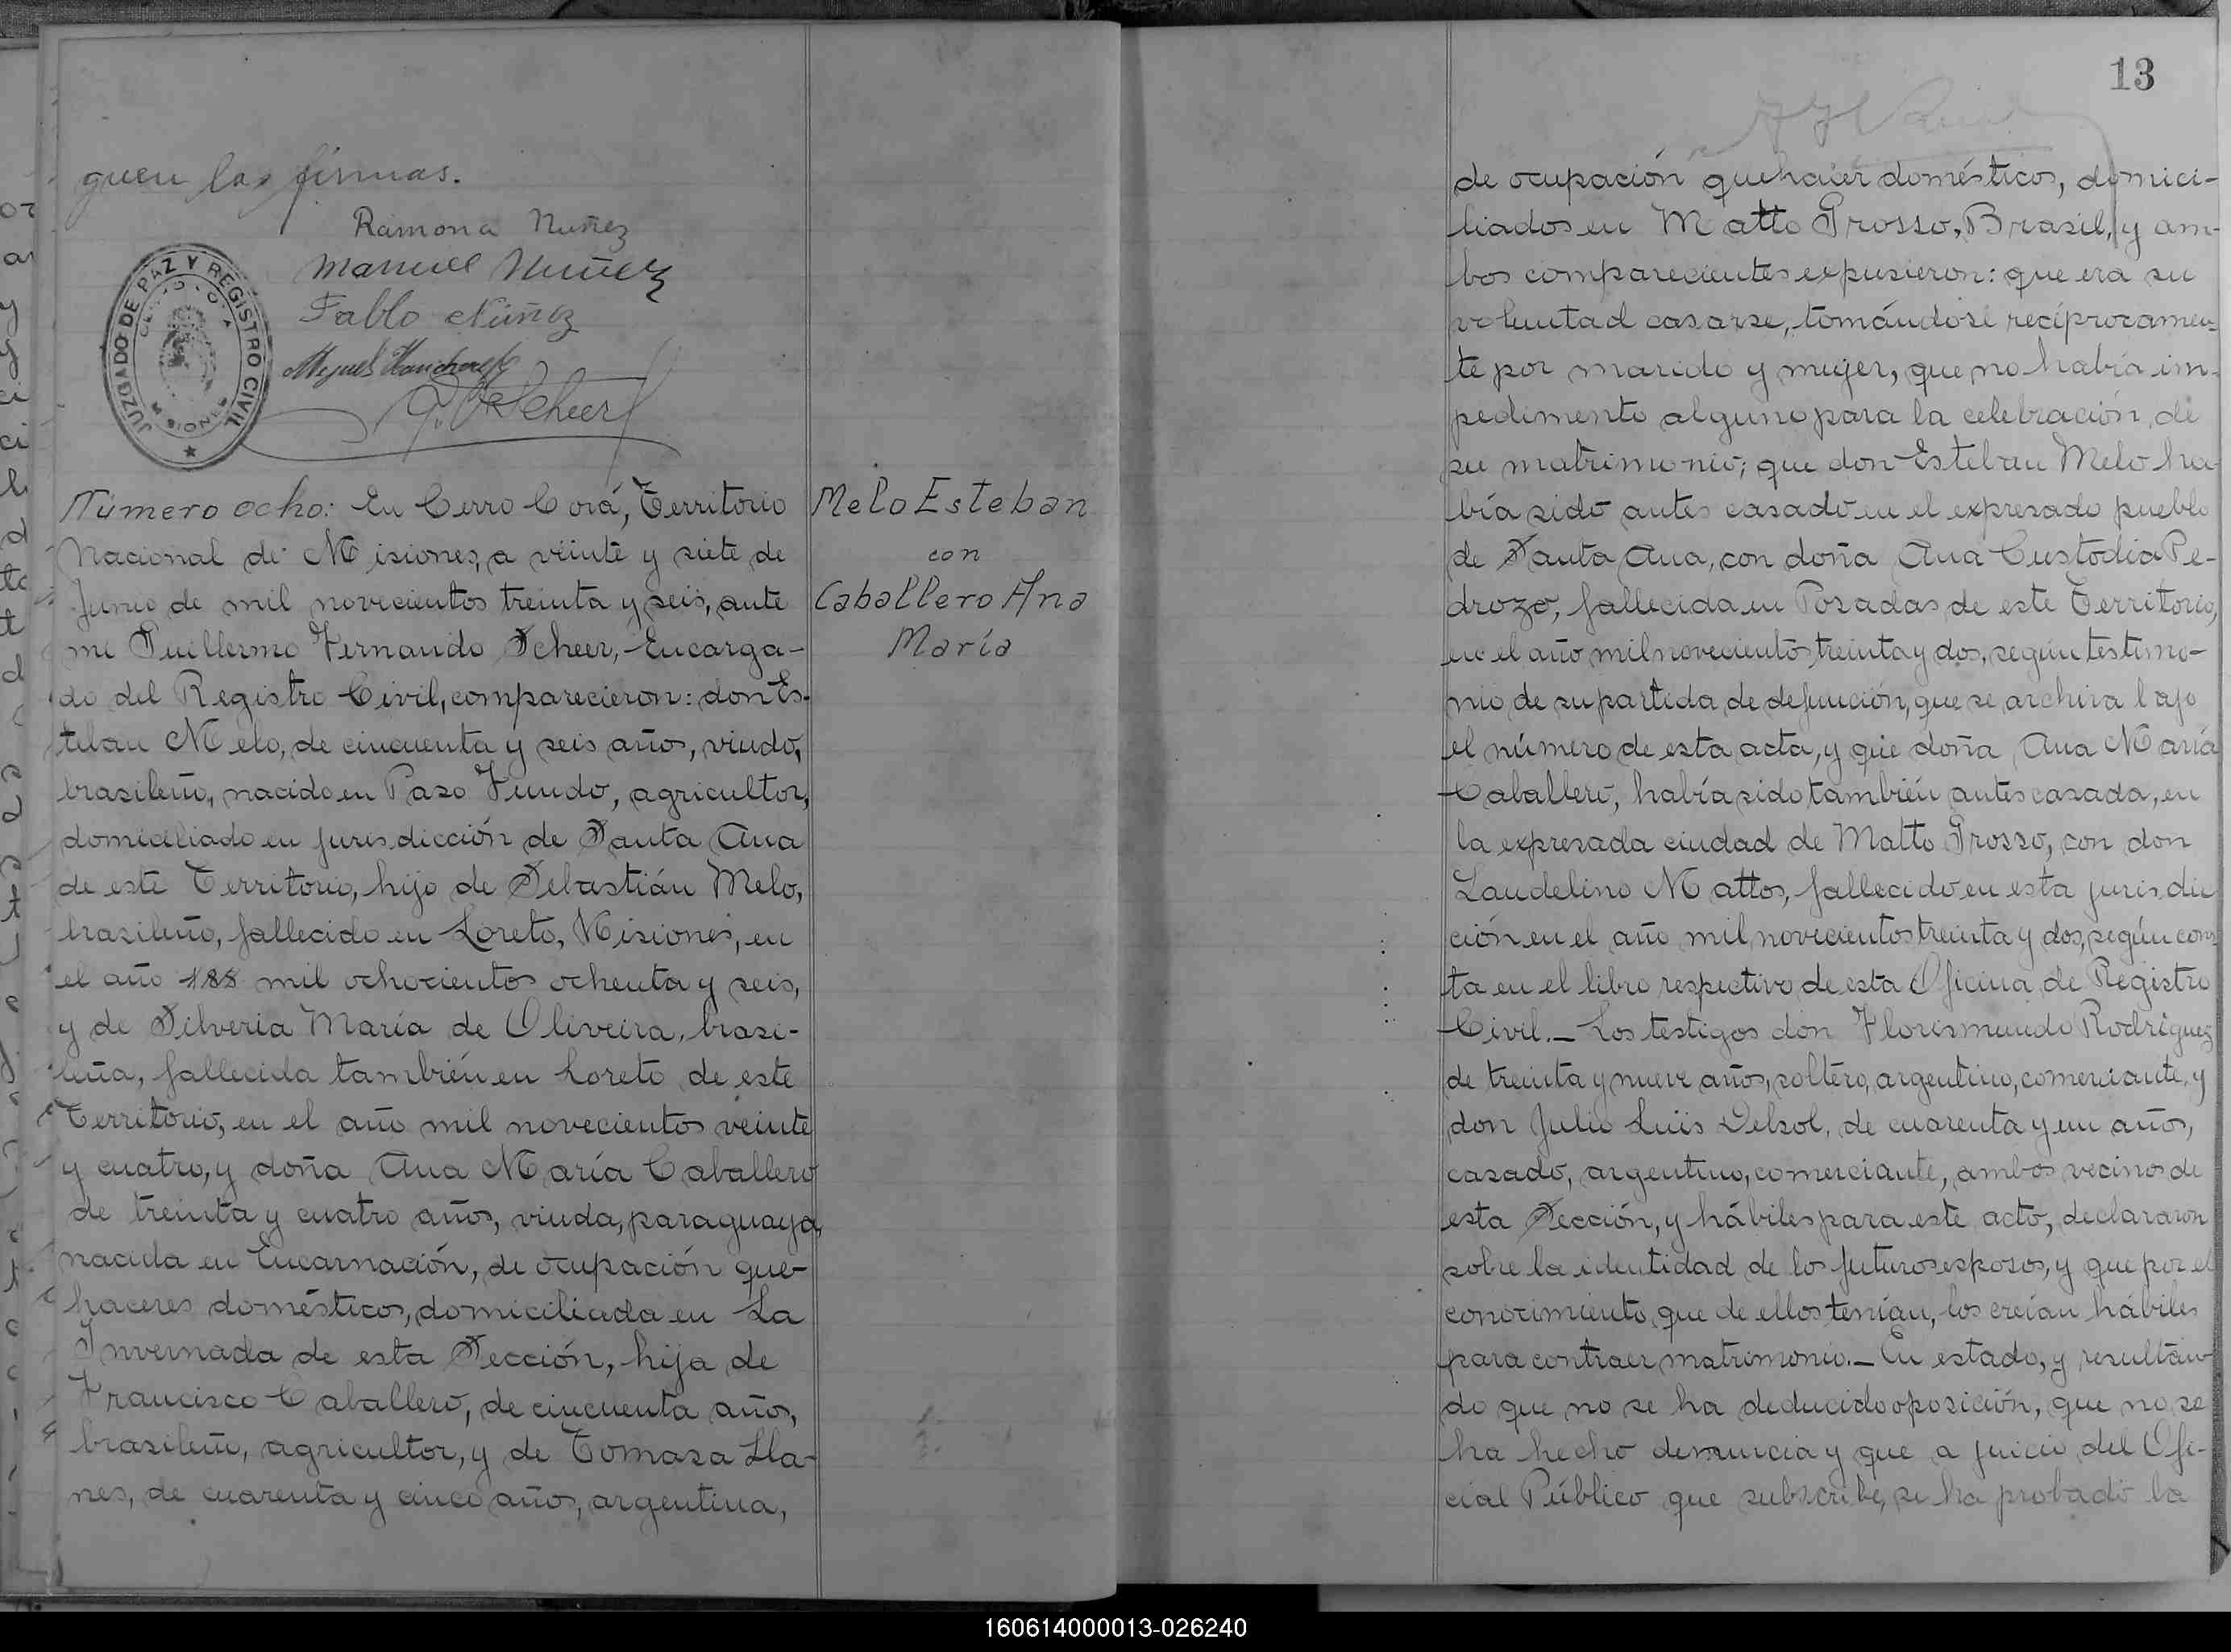 guen las firmas.
Ramona Nuñez
Manuel Nuñez
Pablo Núñez
JUZGADO DE PAZ Y REGISTRO CIVIL
Número ocho: En Cerro Corá, Territorio
Nacional de Misiones, a veinte y siete de
Junio de mil novecientos treinta y seis, ante
mi Guillermo Fernando Scheer, Encarga-
do del Registro Civil, comparecieron: don Es-
teban Melo, de cincuenta y seis años, viudo,
brasileño, nacido en Paso Fundo, agricultor,
domiciliado en jurisdicción de Santa Ana
de este Territorio, hijo de Sebastián Melo,
brasileño, fallecido en Loreto, Misiones, en
el año 188 mil ochocientos ochenta y seis,
y de Silveria María de Oliveira, brasi-
leña, fallecida también en Loreto de este
Territorio, en el año mil novecientos veinte
y cuatro, y doña Ana María Caballero
de treinta y cuatro años, viuda, paraguaya,
nacida en Encarnación, de ocupación que-
haceres domésticos, domiciliada en La
Invernada de esta Sección, hija de
Francisco Caballero, de cincuenta años,
brasileño, agricultor, y de Tomasa Lla-
nes, de cuarenta y cinco años, argentina,
Melo Esteban
con
Caballero Ana
María
13
de ocupación quehacer domésticos, domici-
liados en Matto Grosso, Brasil, y am-
bos comparecientes expusieron: que era su
voluntad casarse, tomándose recíprocamen-
te por marido y mujer, que no había im-
pedimento alguno para la celebración de
su matrimonio; que don Esteban Melo ha-
bía sido antes casado en el expresado pueblo
de Santa Ana, con doña Ana Custodia Pe-
drozo, fallecida en Posadas de este Territorio,
en el año mil novecientos treinta y dos, según testimo-
nio de su partida de defunción, que se archiva bajo
el número de esta acta, y que doña Ana María
Caballero, había sido también antes casada, en
la expresada ciudad de Matto Grosso, con don
Laudelino Mattos, fallecido en esta jurisdic
ción en el año mil novecientos treinta y dos, según cons
ta en el libro respectivo de esta Oficina de Registro
Civil.— Los testigos don Florismundo Rodríguez
de treinta y nueve años, soltero, argentino, comerciante, y
don Julio Luis Delsol, de cuarenta y un años,
casado, argentino, comerciante, ambos vecinos de
esta Sección, y hábiles para este acto, declararon
sobre la identidad de los futuros esposos, y que por el
conocimiento que de ellos tenían, los creían hábiles
para contraer matrimonio.— En estado, y resultan-
do que no se ha deducido oposición, que no se
ha hecho denuncia y que a juicio del Ofi-
cial Público que subscribe, se ha probado la
160614000013-026240